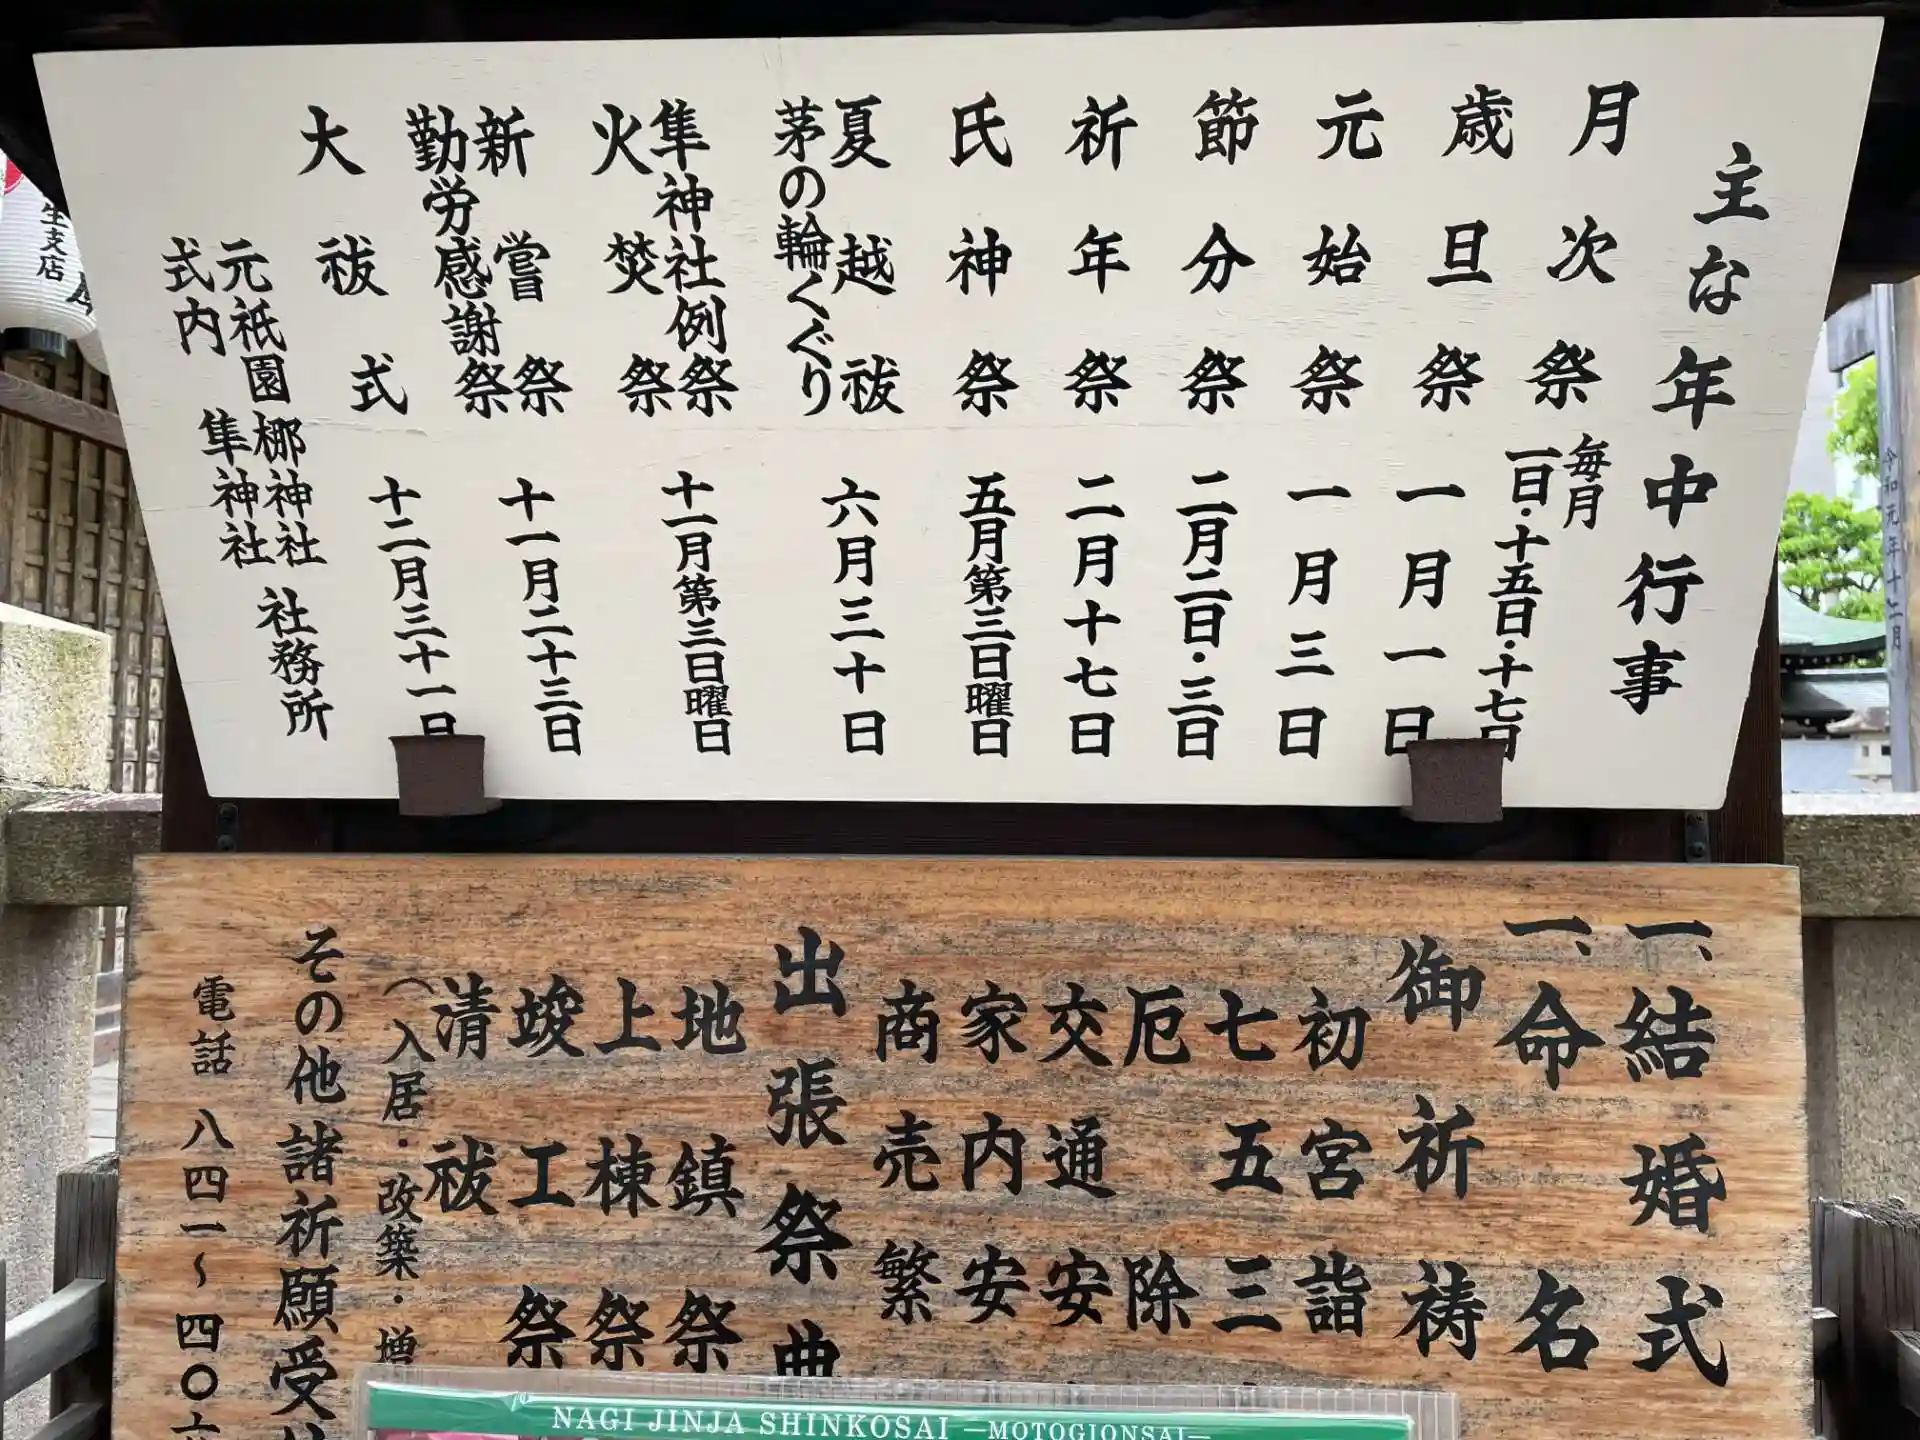 主な年中行事
月次祭 毎月一日・十五日・十七日
歳旦祭 一月一日
元始祭 一月三日
節分祭 二月二日・三日
祈年祭 二月十七日
氏神祭 五月第三日曜日
夏越祓
茅の輪くぐり
六月三十日
隼神社例祭
火焚祭
十一月第三日曜日
新嘗祭
勤労感謝祭
十一月二十三日
大祓式 十二月三十一日
元祇園 梛神社
式内 隼神社
社務所
一、結婚式
一、命名
御祈祷
初宮詣
七五三
厄除
交通安
家内安
商売繁
出張祭典
地鎮祭
上棟祭
竣工祭
清祓
（入居・改築・増
その他諸祈願受
電話 八四一〜四〇六
NAGI JINJA SHINKOSAI —MOTOGIONSAI—
生支店
令和元年十二月